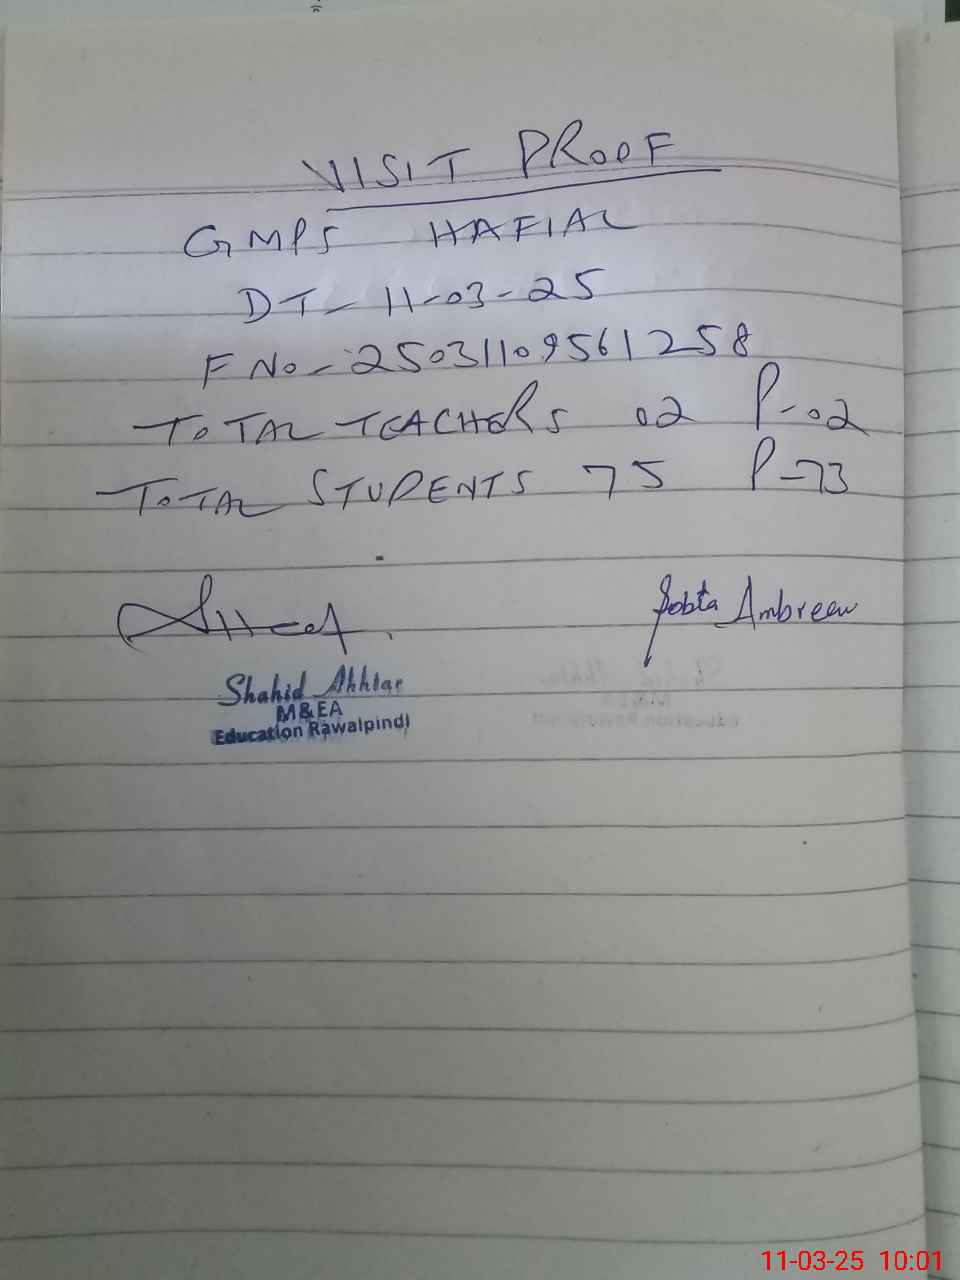 VISIT PROOF
GMPS HAFIAL
DT- 11-03-25
F No- 25031109561258
TOTAL TEACHERS 02 P-02
TOTAL STUDENTS 75 P-73
Ambreen
Shahid Akhtar
M&EA
Education Rawalpindi
11-03-25 10:01